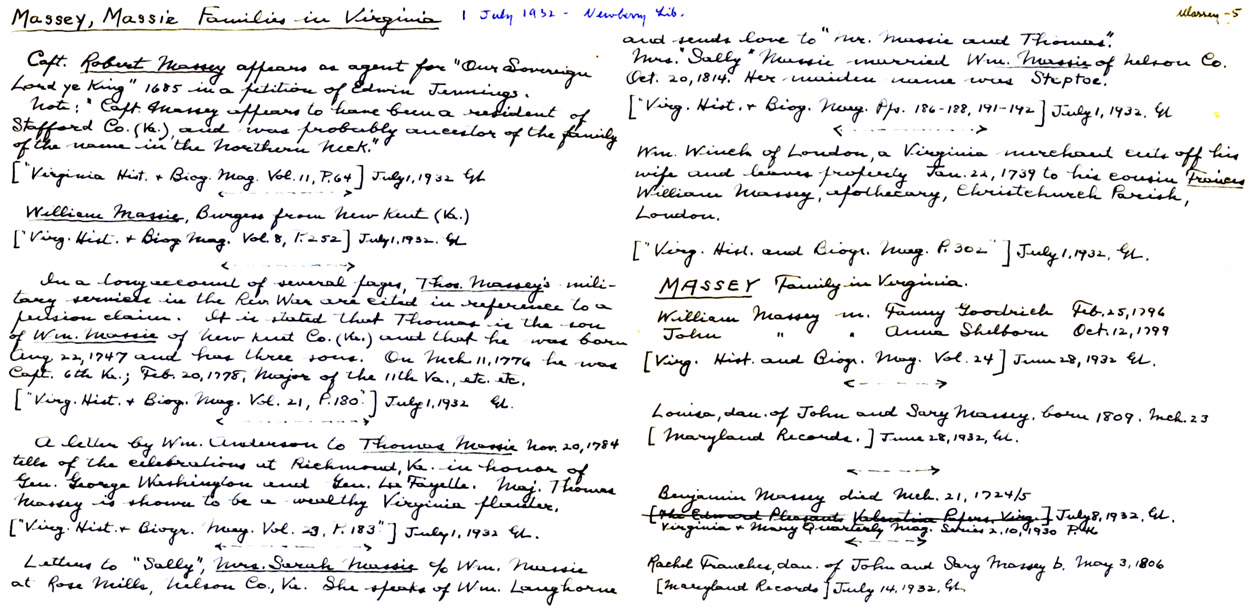 Massey, Massie Families in Virginia 1 July 1932 - Newberry Lib.
Capt. Robert Massey appears as agent for "Our Sovereign
Lord ye King" 1685 in a petition of Edwin Jennings.
Note: "Capt Massey appears to have been a resident of
Stafford Co. (Va.), and was probably ancestor of the family
of the name in the Northern Neck."
["Virginia Hist. + Biog. Mag. Vol. 11, P. 64] July 1, 1932
William Massie, Burgess from New Kent (Va.)
["Virg. Hist. + Biog Mag. Vol. 8, P. 252] July 1, 1932.
In a long account of several pages, Thos. Massey's mili-
tary services in the Rev War are cited in reference to a
pension claim. It is stated that Thomas is the son
of Wm. Massie of New Kent Co. (Va.) and that he was born
Aug 22, 1747 and has three sons. On Mch 11, 1776 he was
Capt. 6th Va.; Feb. 20, 1778, Major of the 11th Va., etc. etc.
["Virg. Hist. + Biog. Mag. Vol. 21, P. 180"] July 1, 1932
A letter by Wm. Anderson to Thomas Massie Nov. 20, 1784
tells of the celebrations at Richmond, Va. in honor of
Gen. George Washington and Gen. La Fayette. Maj. Thomas
Massey is shown to be a wealthy Virginia planter.
["Virg. Hist. + Biogr. Mag. Vol. P. 183"] July 1, 1932
Letters to "Sally", Mrs. Sarah Massie c/o Wm. Massie
at Rose Mills, Nelson Co., Va. She speaks of Wm. Langhorne
Massey - 5
and sends love to "Mr. Massie and Thomas".
Mrs. "Sally" Massie married Wm. Massie of Nelson Co.
Oct. 20, 1814. Her maiden name was Steptoe.
["Virg. Hist. + Biog. Mag. Pps. 186-188, 191-192] July 1, 1932.
Wm. Winch of London, a Virginia merchant cuts off his
wife and leaves property Jan. 22, 1739 to his cousin Frances
William Massey, apothecary, Christchurch Parish,
London.
["Virg. Hist. and Biogr. Mag. P. 302"] July 1, 1932,
MASSEY Family in Virginia.
William Massey m. Fanny Goodrich Feb. 25, 1796
John " " Anna Shelborn Oct. 12, 1799
[Virg. Hist. and Biogr. Mag. Vol. 24] June 28, 1932
Louisa, dau. of John and Sary Massey, born 1809. Mch. 23
[Maryland Records.] June 28, 1932,
Benjamin Massey died Mch. 21, 1724/5
[The Edward Pleasants Valentine Papers, Virg.] July 8, 1932,
Virginia + Mary Quarterly Mag. Series 2, 10, 1930 P. 46
Rachel Franches, dau. of John and Sary Massey b. May 3, 1806
[Maryland Records] July 14, 1932,